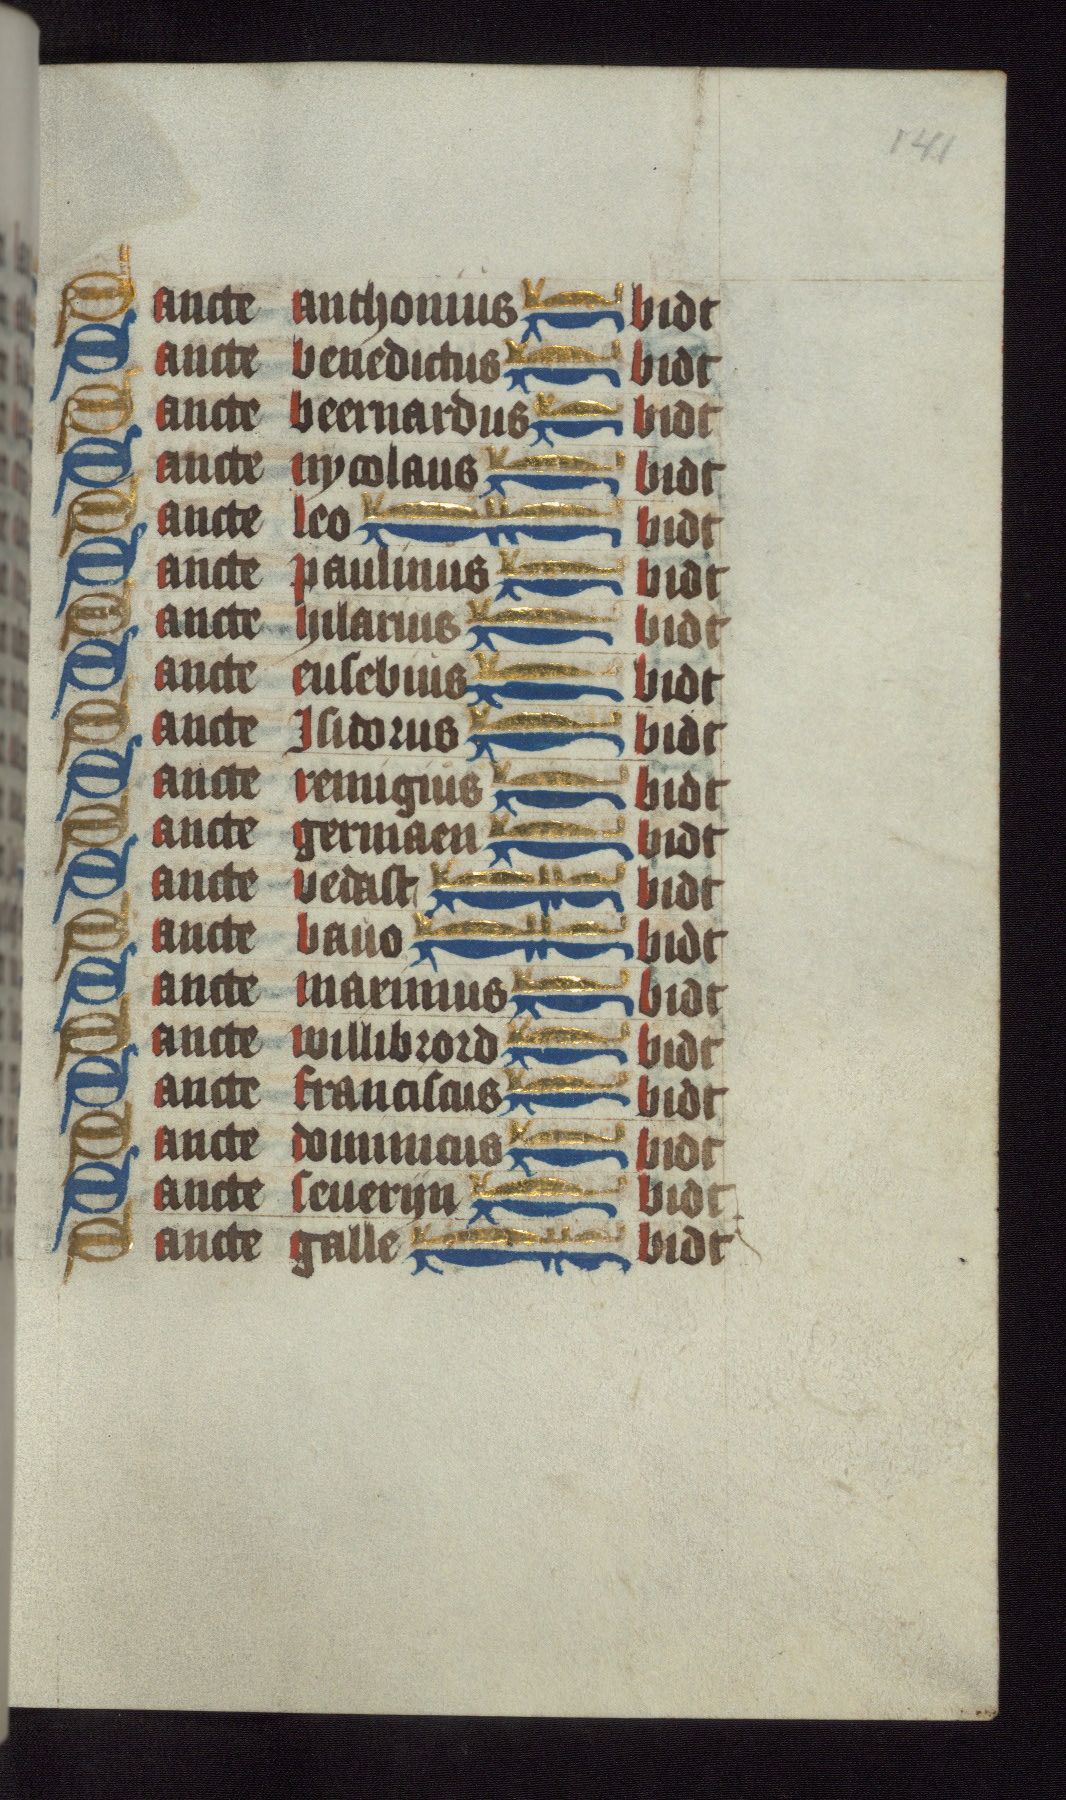 141
Sancte anthonius bidt
Sancte benedictus bidt
Sancte beernardus bidt
Sancte nycolaus bidt
Sancte leo bidt
Sancte paulinus bidt
Sancte hilarius bidt
Sancte eusebius bidt
Sancte Jsidorus bidt
Sancte remigius bidt
Sancte germaen bidt
Sancte vedast bidt
Sancte bavo bidt
Sancte marinius bidt
Sancte willibrord bidt
Sancte franciscus bidt
Sancte dominicus bidt
Sancte seuerijn bidt
Sancte galle bidt